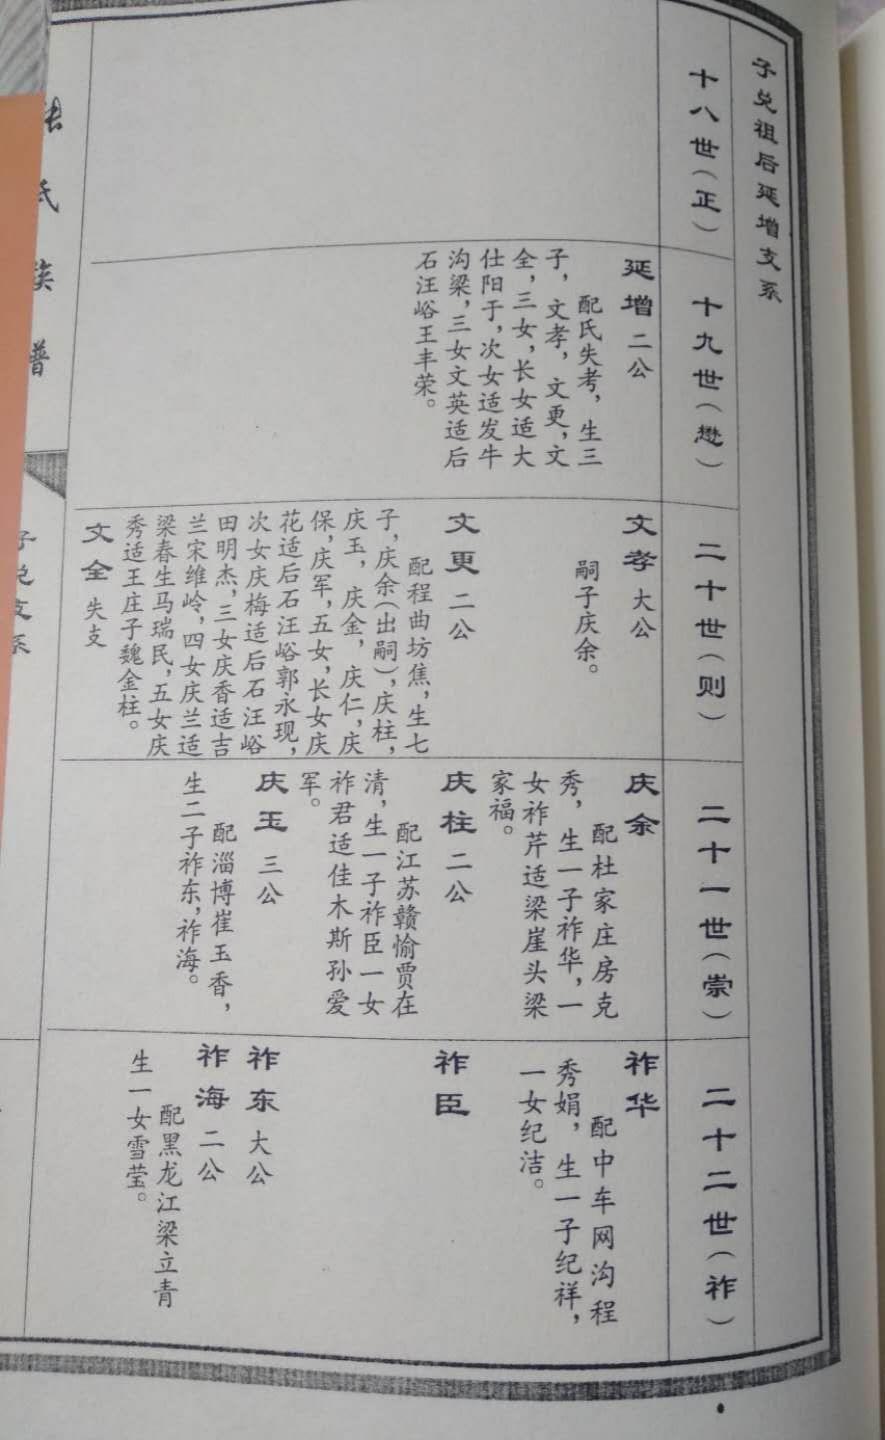 子兑祖后延增支系
十八世(正)
十九世(懋)
二十世(则)
二十一世(崇)
二十二世(祚)
延增 二公
配氏失考，生三
子，文孝，文更，文
全，三女，长女适大
仕阳于，次女适发牛
沟梁，三女文英适后
石汪峪王丰荣。
文孝 大公
嗣子庆余。
文更 二公
配程曲坊焦，生七
子，庆余(出嗣)，庆柱，
庆玉，庆金，庆仁，庆
保，庆军，五女，长女庆
花适后石汪峪郭永现，
次女庆梅适后石汪峪
田明杰，三女庆香适吉
兰宋维岭，四女庆兰适
梁春生马瑞民，五女庆
秀适王庄子魏金柱。
文全 失支
庆余
配杜家庄房克
秀，生一子祚华，一
女祚芹适梁崖头梁
家福。
庆柱 二公
配江苏赣愉贾在
清，生一子祚臣一女
祚君适佳木斯孙爱
军。
庆玉 三公
配淄博崔玉香，
生二子祚东，祚海。
祚华
配中车网沟程
秀娟，生一子纪祥，
一女纪洁。
祚臣
祚东 大公
祚海 二公
配黑龙江梁立青
生一女雪莹。
张氏族谱
子兑支系